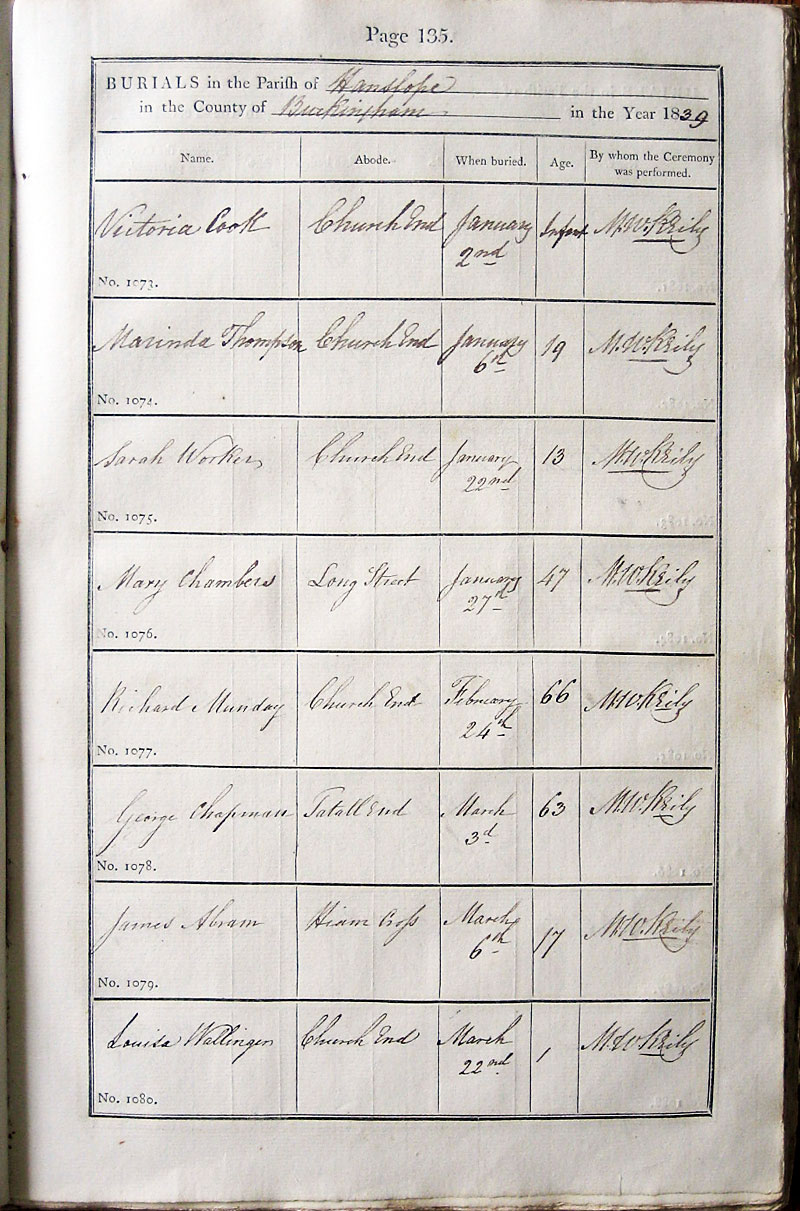 Page 135.
BURIALS in the Parish of Hanslope
in the County of Buckingham in the Year 1839
Name. Abode. When buried. Age. By whom the Ceremony
was performed.
Victoria Cook Church End January Infant
2nd
No. 1073.
Marinda Thompson Church End January 19
6th
No. 1074.
Sarah Worker Church End January 13
22nd
No. 1075.
Mary Chambers Long Street January 47
27th
No. 1076.
Richard Munday Church End February 66
24th
No. 1077.
George Chapman Tatall End March 63
3d
No. 1078.
James Abram Hiam Cross March 17
6th
No. 1079.
Louisa Wallinger Church End March 1
22nd
No. 1080.